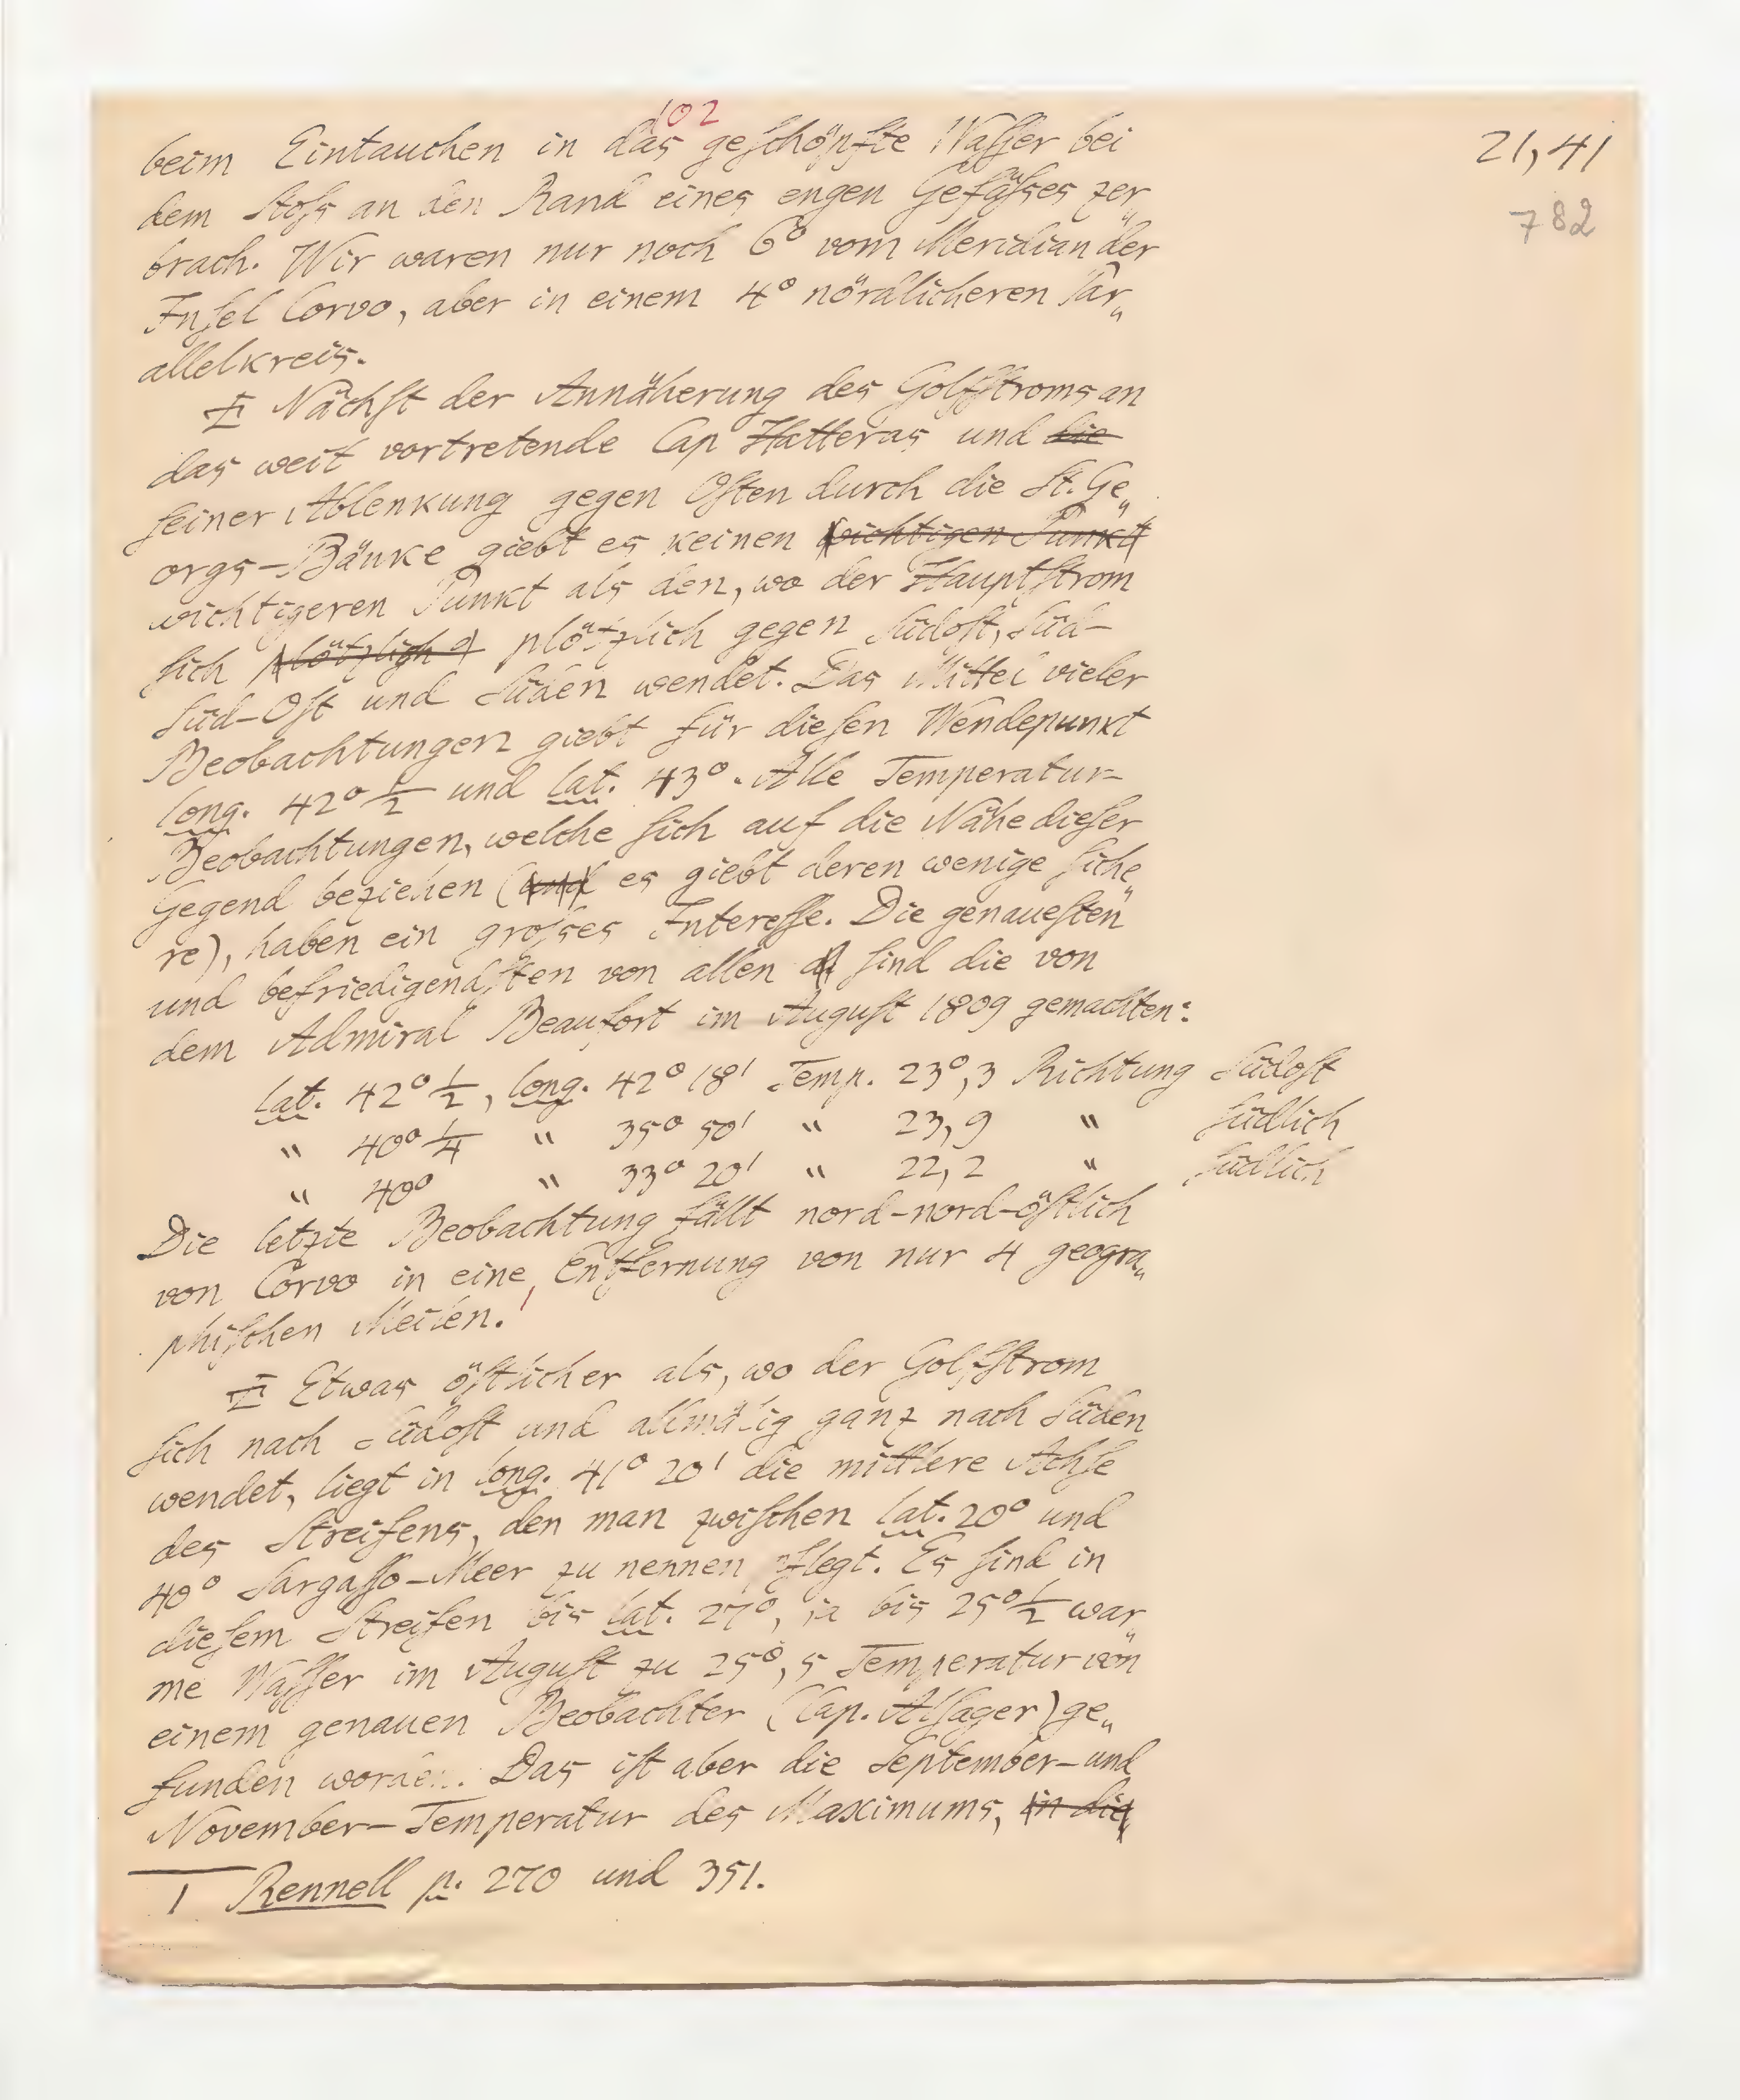 102
21,41
782
beim Eintauchen in das geſchöpfte Waſſer bei
dem Stoſs an den Rand eines engen Gefäſses zer„
brach. Wir waren nur noch 6° vom Meridian der
Inſel Corvo, aber in einem 4° nördlicheren Par„
allelkreis.
Nächſt der Annäherung des Golfſtroms an
das weit vortretende Cap Hatteras und die
ſeiner Ablenkung gegen Oſten durch die St. Ge„
orgs-Bänke giebt es keinen wichtigen Punkt
wichtigeren Punkt als den, wo der Hauptſtrom
ſich plötzlich plötzlich gegen Südoſt, Süd-
Süd-Oſt und Süden wendet. Das Mittel vieler
Beobachtungen giebt für dieſen Wendepunkt
long. 42° 1/2 und lat. 43°. Alle Temperatur-
Beobachtungen, welche ſich auf die Nähe dieſer
Gegend beziehen (und es giebt deren wenige ſiche„
re), haben ein groſses Intereſſe. Die genaueſten
und befriedigendſten von allen ſind die von
dem Admiral Beaufort im Auguſt 1809 gemachten:
lat. 42° 1/2, long. 42° 18' Temp. 23°,3 Richtung Südoſt
" 40° 1/4 " 35° 50' " 23,9 " ſüdlich
" 40° " 33° 20' " 22,2 " ſüdlich
Die letzte Beobachtung fällt nord-nord-öſtlich
von Corvo in eine Entfernung von nur 4 geogra„
phiſchen Meilen.1
Etwas öſtlicher als, wo der Golfſtrom
ſich nach Südoſt und allmälig ganz nach Süden
wendet, liegt in long. 41° 20' die mittlere Achſe
des Streifens, den man zwiſchen lat. 20° und
40° Sargaſſo-Meer zu nennen pflegt. Es ſind in
dieſem Streifen bis lat. 27°, ja bis 25° 1/2 war„
me Waſſer im Auguſt zu 25°,5 Temperatur von
einem genauen Beobachter (Cap. Alſager) ge„
funden worden. Das iſt aber die September- und
November-Temperatur des Maximums, in die
1 Rennell p. 270 und 351.